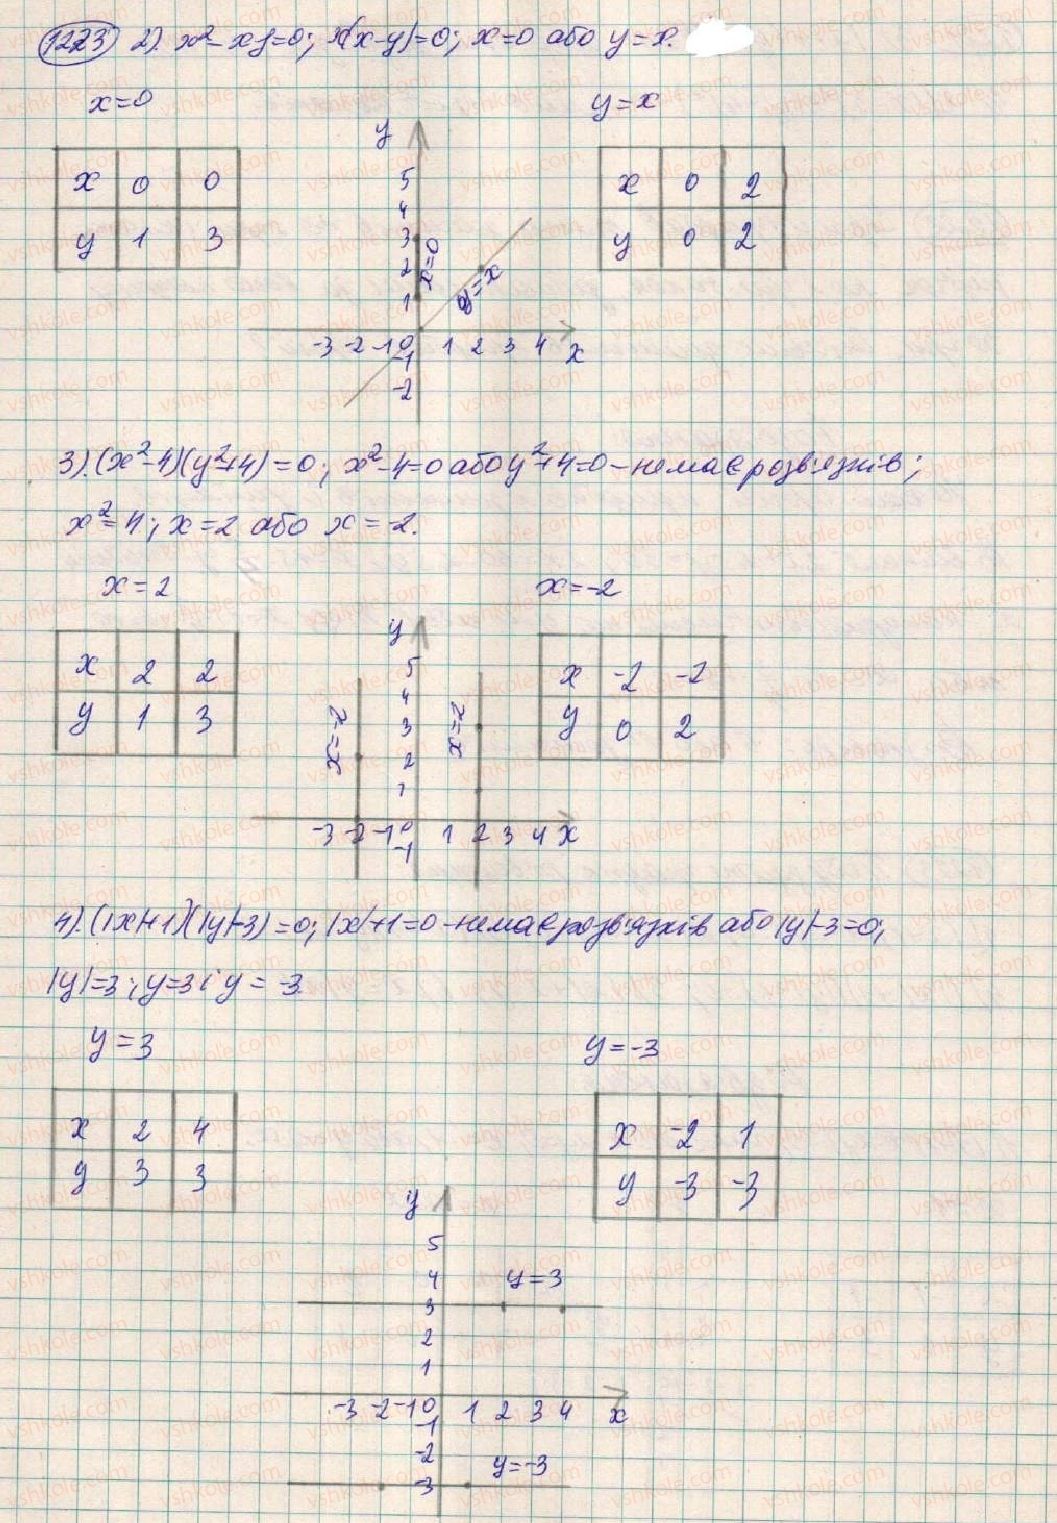 1223 2). x²-xy=0; x(x-y)=0; x=0 або y=x.
x=0
y=x
x 0 0
y 1 3
x 0 2
y 0 2
y
5
4
3
2
1
x=0
y=x
-3 -2 -1 0 1 2 3 4 x
-1
-2
3). (x²-4)(y²+4)=0; x²-4=0 або y²+4=0 - немає розв'язків;
x²=4; x=2 або x=-2.
x=2
x=-2
x 2 2
y 1 3
x -2 -2
y 0 2
y
5
4
3
2
1
x=-2
x=2
-3 -2 -1 0 1 2 3 4 x
-1
4). (|x|+1)(|y|-3)=0; |x|+1=0 - немає розв'язків або |y|-3=0;
|y|=3; y=3 і y=-3
y=3
y=-3
x 2 4
y 3 3
x -2 1
y -3 -3
y
5
4
3
2
1
y=3
-3 -2 -1 0 1 2 3 4 x
-1
-2
-3
y=-3
vshkole.com